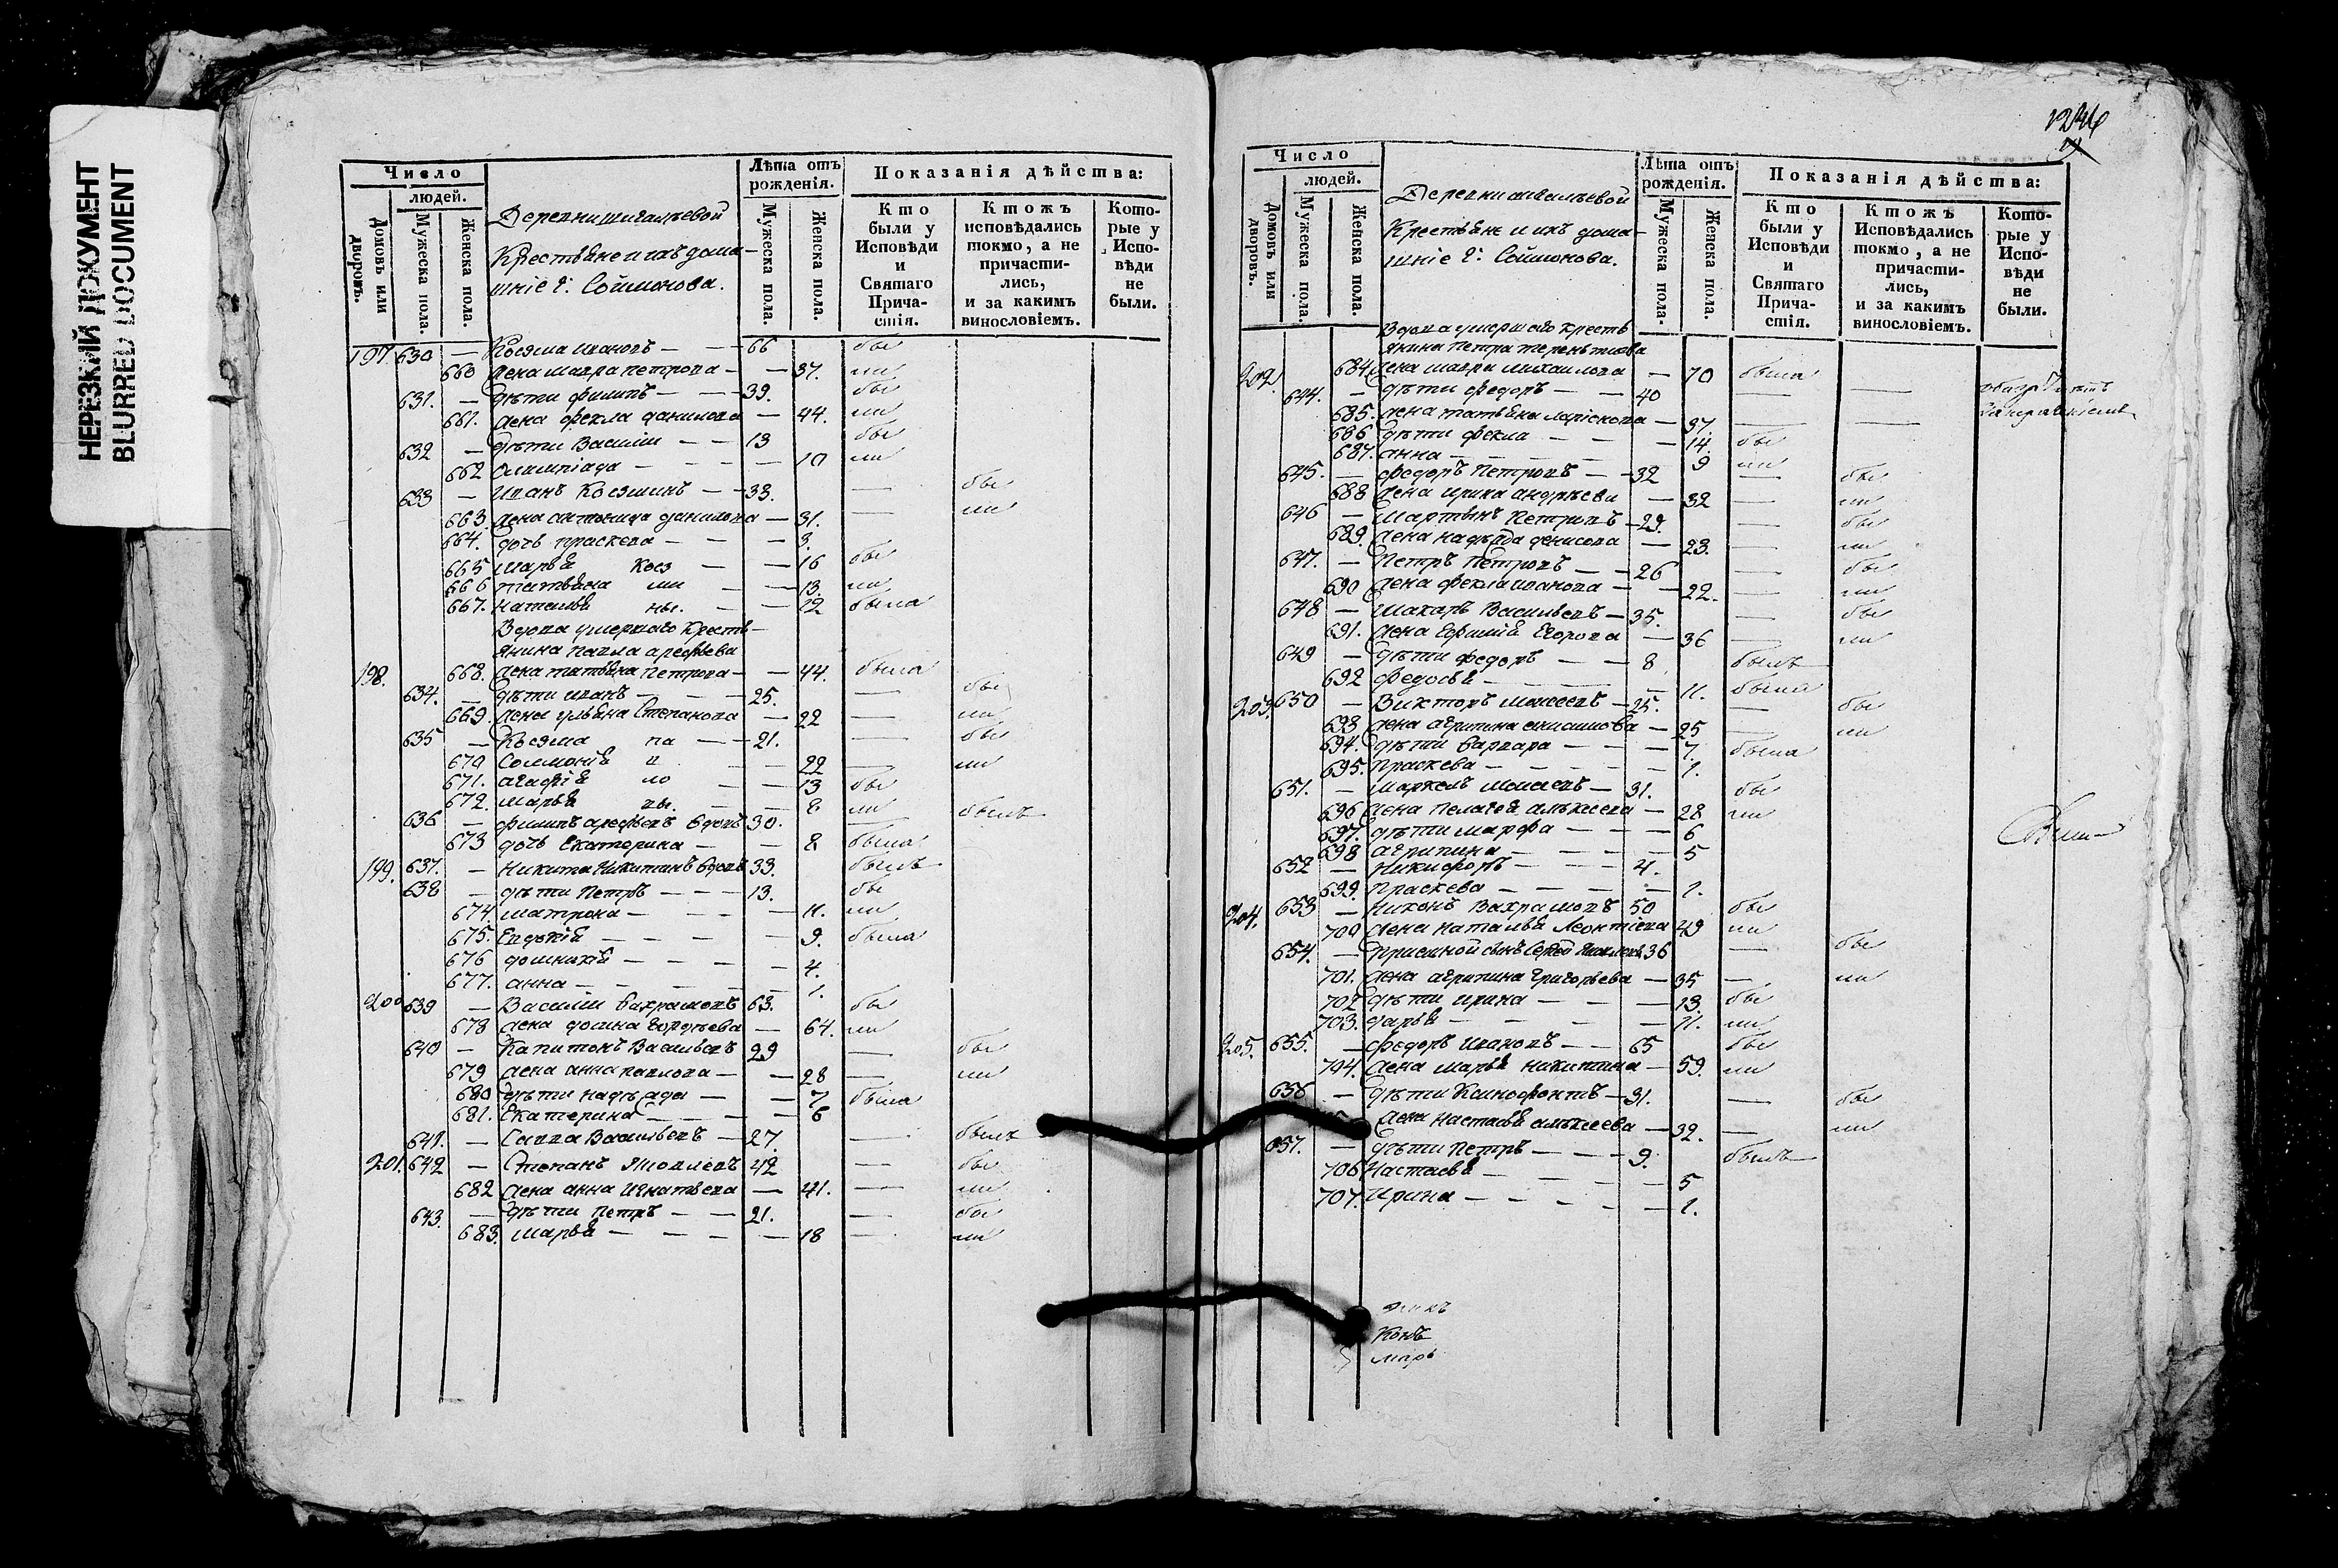 НЕРЕЗКИЙ ДОКУМЕНТ
BLURRED DOCUMENT
Число
людей.
Домовъ или дворовъ.
Мужеска пола.
Женска пола.
Деревни
Крестьяне и ихъ дома-
шніе г: Соймонова.
Лѣта отъ рожденія.
Мужеска пола.
Женска пола.
Показанія дѣйства:
Кто были у Исповѣди и Святаго Причастія.
Ктожъ исповѣдались токмо, а не причастились, и за какимъ винословіемъ.
Которые у Исповѣди не были.
197. 630 — Козма Ивановъ — — 66 бы
660 Жена Мавра Петрова — — 37. ли
631. — дѣти Филипъ — — 39. бы
661. Жена Фекла Данилова — 44. ли
632 — дѣти Василіи — — 13 бы
662 Олимпіада — — — — 10 ли
633 — Иванъ Козминъ — — 33. — бы
663. Жена Данилова — 31. — ли
664. дочь Праскева — — — 3.
665 Марья Коз — — 16 бы
666 Татьяна ми — — 13. ли
667. Наталья ны. — — 12 была
Вдова умершаго кресть-
янина Павла Арефьева
198. 668. Жена Татьяна Петрова — — 44. была
634. — дѣти Иванъ — — — 25. — бы
669. Жена Ульяна Степанова — 22 — ли
635 — Козма па — — 21. — бы
670 Соломонія в — — 22 — ли
671. Агафія ло — — 13 бы
672. Марья вы. — — 8 ли
636 — Филипъ Арефьевъ вдовъ 30. — былъ
673 дочь Екатерина — — 8 была
199. 637. — Никита Никитинъ вдовъ 33. былъ
638 — дѣти Петръ — — — 13. бы
674. Матрона — — — — 11. ли
675. Евдокія — — — — 9. была
676 Домникія — — — — 4.
677. Анна — — — — — 1.
200 639 — Василіи Вахрамовъ 63. бы
678 Жена Домна — 64. ли
640 — Капитонъ Васильевъ 29 — бы
679 Жена Анна Павлова — — 28 — ли
680 дѣти Надежда — — 7 была
681. Екатерина — — — — 6
641. — Савва Васильевъ — 27. — былъ
201. 642 — Степанъ Яковлевъ 42 — бы
682 Жена Анна Игнатьева — 41. — ли
643. — дѣти Петръ — — 21. — бы
683. Марья — — — — 18 — ли
Число
людей.
Домовъ или дворовъ.
Мужеска пола.
Женска пола.
Деревни
Крестьяне и ихъ дома-
шніе г: Соймонова.
Лѣта отъ рожденія.
Мужеска пола.
Женска пола.
Показанія дѣйства:
Кто были у Исповѣди и Святаго Причастія.
Ктожъ Исповѣдались токмо, а не причастились, и за какимъ винословіемъ.
Которые у Исповѣди не были.
Вдова умершаго кресть
янина Петра Терентиева
202 684. Жена Мавра Михаилова — 70 была —
644. — дѣти Федоръ — — 40 —
685. Жена Татьяна — 37. — —
686 дѣти Фекла — — — 14. бы
687. Анна — — — — — 9 ли
645. — Федоръ Петровъ — — 32 — бы
688 Жена Ирина Андреева — 32 — ли
646 — Мартынъ Петровъ — 29. — бы
689. Жена Надежда Денисова — 23. — ли
647. — Петръ Петровъ — — 26 — бы
690 Жена Фекла Иванова — — 22. — ли
648 — Макаръ Васильевъ — 35. — бы
691. Жена Егорова — 36 — ли
649 — дѣти Федоръ — — 8 былъ
692 Федосья — — — — 11. была
203. 650 — Викторъ Моисеевъ — 25. — бы
693 Жена Агрипина — 25 — ли
694. дѣти Варвара — — — 7. была
695. Праскева — — — — 1.
651. — Маркелъ Моисеевъ — 31. бы
696 Жена Пелагея Алексеева — 28 ли
697. дѣти Марфа — — — 6
698 Агрипина — — — — 5
652 — Никифоръ — — — 4.
699. Праскева — — — — 1.
204. 653 — Никонъ Вахрамовъ 50 бы
700 Жена Наталья Леонтиева 49 ли
654. — Приемной сынъ 36 — бы
701. Жена Агрипина Григорьева — 35 — ли
702 дѣти Ирина — — — 13. бы
703. Дарья — — — — 11. ли
205. 655. — Федоръ Ивановъ — — 65 бы
704. Жена Марья Никитина — 59. ли
656 — дѣти Ксинофонтъ — 31. — бы
Жена Настасья Алексеева — 32. — ли
657. — дѣти Петръ — — — 9. былъ
706 Настасья — — — — 5
707. Ирина — — — — — 1.